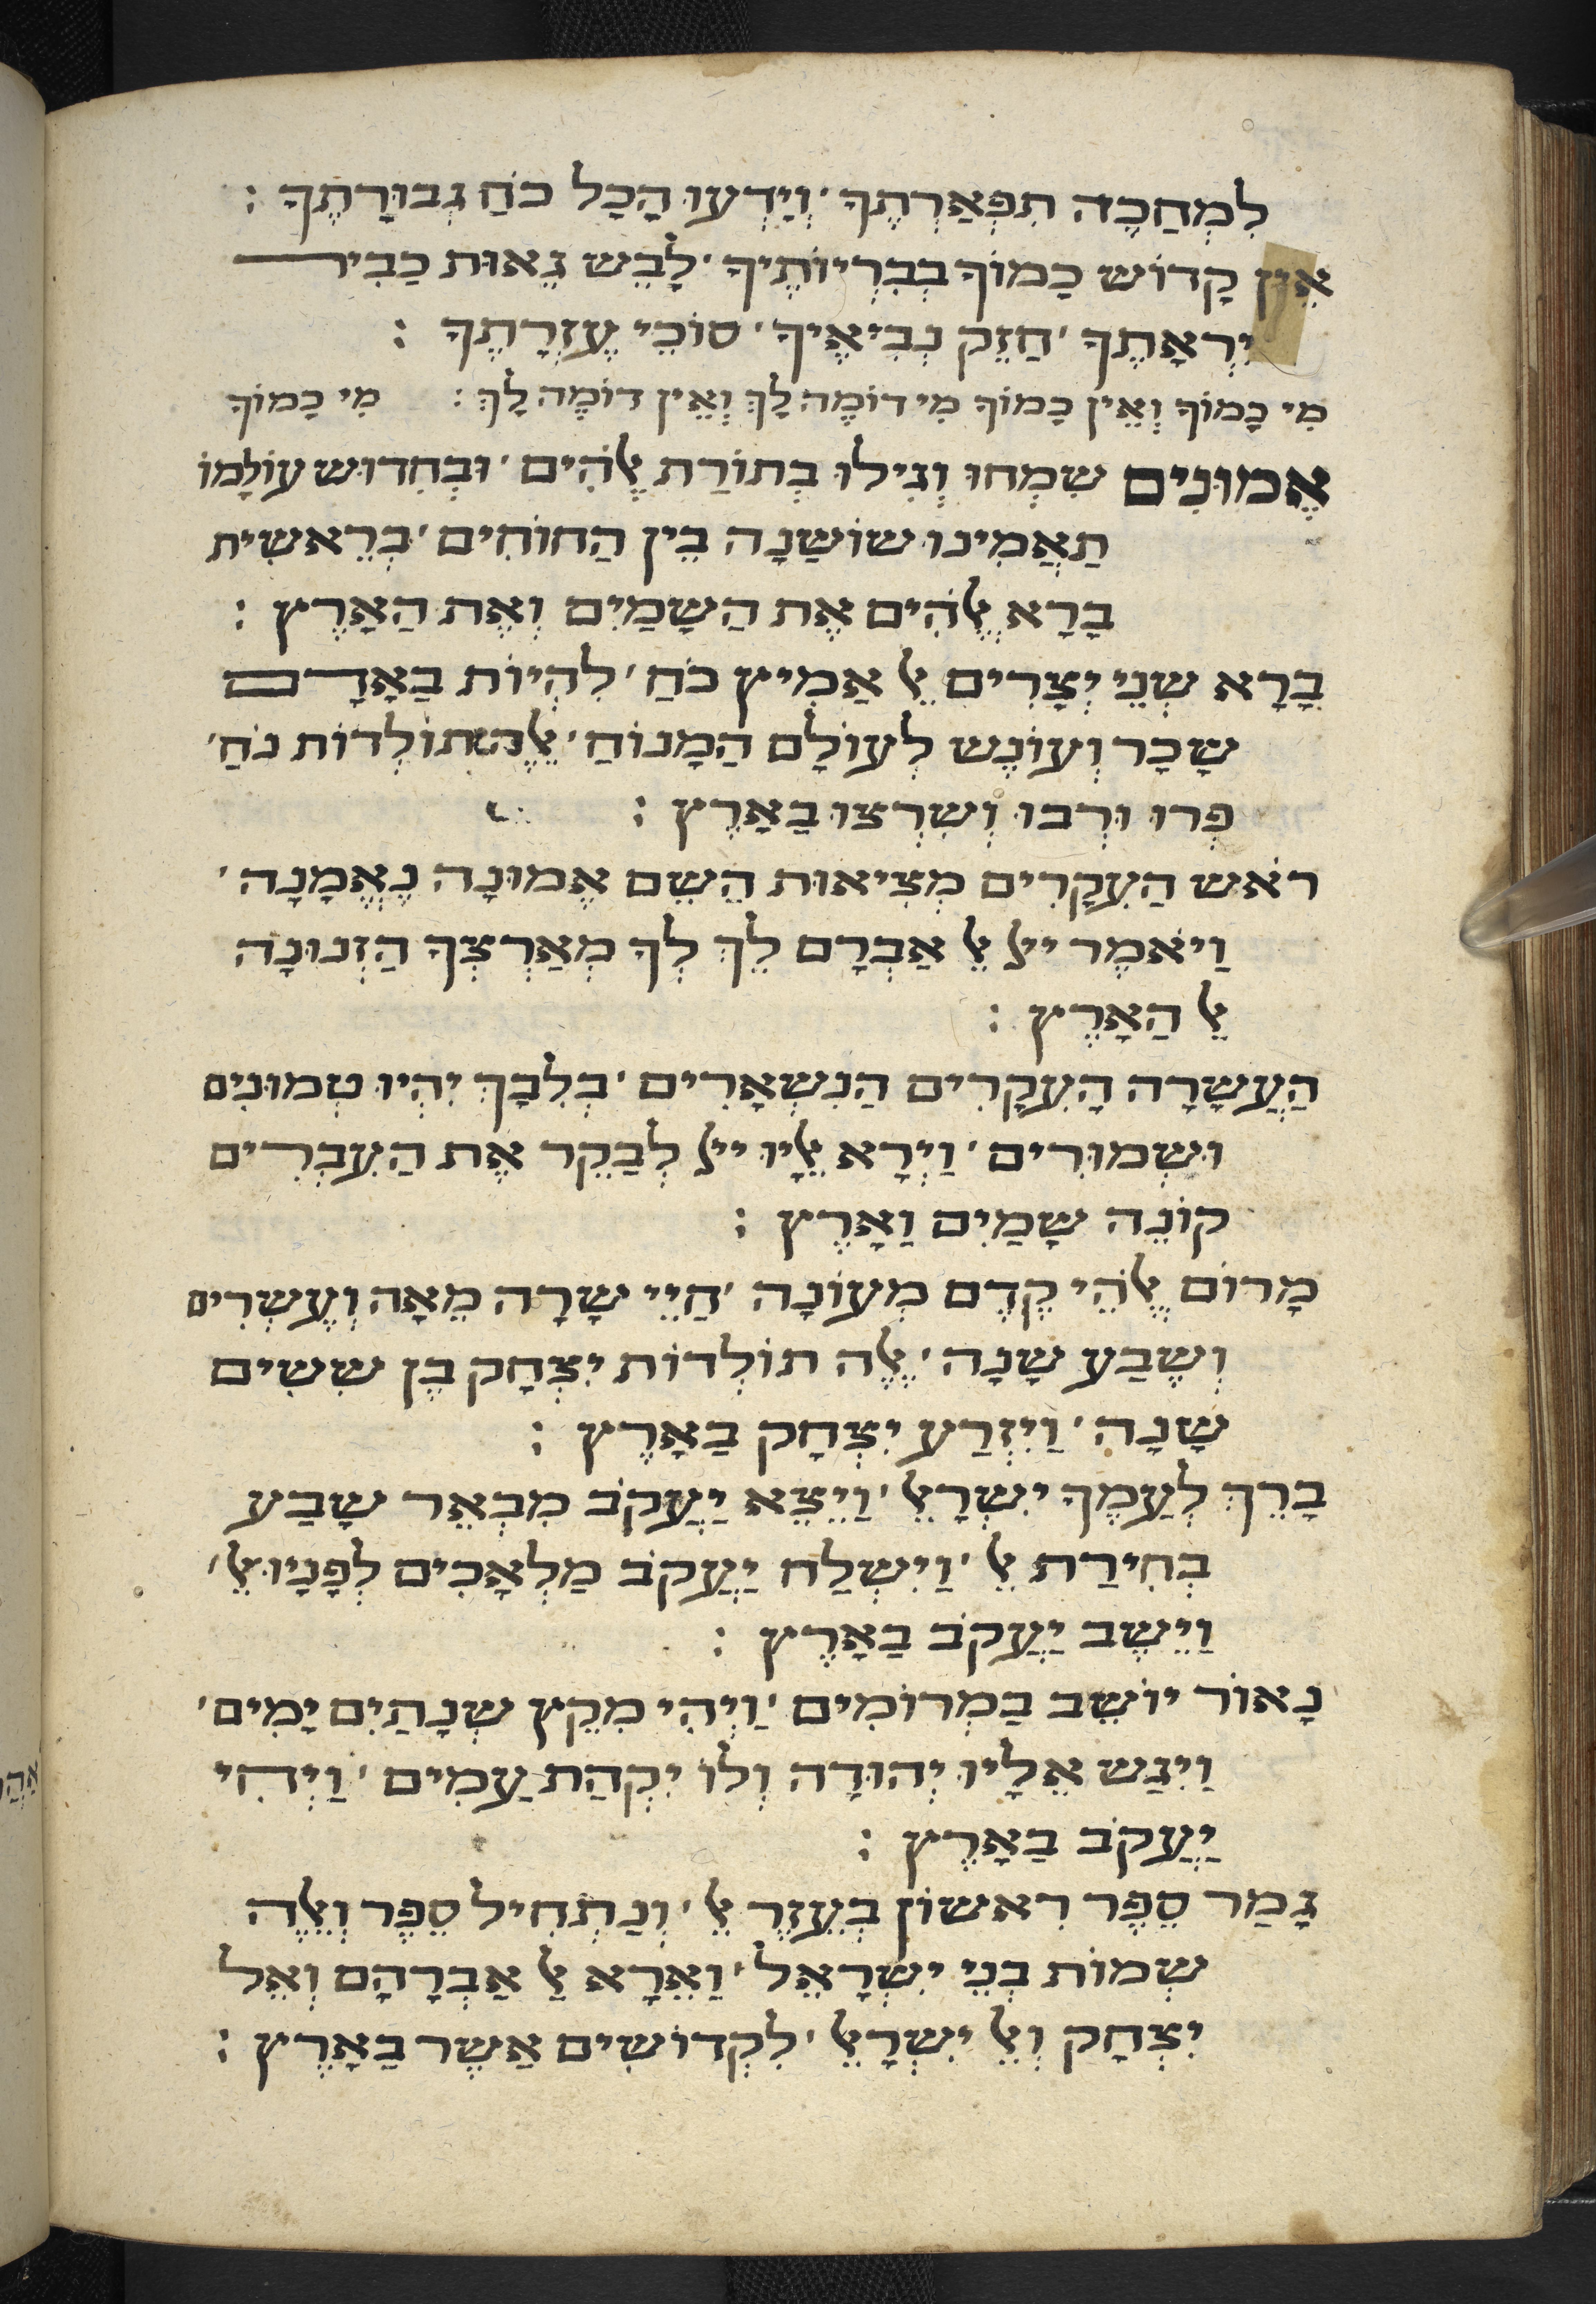 לִמְחַכֶּה תִפְאַרְתֶּךָ ׳ וְיָדְעוּ הַכָּל כֹּחַ גְּבוּרָתֶךָ :
אֵין קָדוֹשׁ כָּמוֹךָ בִּבְרִיּוֹתֶיךָ ׳ לָבֵשׁ גֵּאוּת כַּבִּיר
יִרְאָתֶךָ ׳ חַזֵּק נְבִיאֶיךָ ׳ סוֹכֵי עֶזְרָתֶךָ :
מִי כָמוֹךָ וְאֵין כָּמוֹךָ מִי דוֹמֶה לָּךְ וְאֵין דּוֹמֶה לָּךְ : מִי כָמוֹךָ
אֱמוּנִים שִׂמְחוּ וְגִילוּ בְּתוֹרַת אֱלֹהִים ׳ וּבְחִדּוּשׁ עוֹלָמוֹ
תַּאֲמִינוּ שׁוֹשַׁנָּה בֵּין הַחוֹחִים ׳ בְּרֵאשִׁית
בָּרָא אֱלֹהִים אֶת הַשָּׁמַיִם וְאֶת הָאָרֶץ :
בָּרָא שְׁנֵי יְצָרִים אֵל אַמִּיץ כֹּחַ ׳ לִהְיוֹת בָּאָדָם
שָׂכָר וְעוֹנֶשׁ לְעוֹלָם הַמָּנוֹחַ ׳ אֵלֶּה תוֹלְדוֹת נֹחַ ׳
פְּרוּ וּרְבוּ וְשִׁרְצוּ בָאָרֶץ :
רֹאשׁ הָעִקָּרִים מְצִיאוּת הַשֵּׁם אֱמוּנָה נֶאֱמָנָה ׳
וַיֹּאמֶר ייל אֶל אַבְרָם לֶךְ לְךָ מֵאַרְצְךָ הַזְּנוּנָה
אֶל הָאָרֶץ :
הָעֲשָׂרָה הָעִקָּרִים הַנִּשְׁאָרִים ׳ בְּלִבָּךְ יִהְיוּ טְמוּנִים
וּשְׁמוּרִים ׳ וַיֵּרָא אֵלָיו ייל לְבַקֵּר אֶת הָעִבְרִים
קוֹנֵה שָׁמַיִם וָאָרֶץ :
מָרוֹם אֱלֹהֵי קֶדֶם מְעוֹנָה ׳ חַיֵּי שָׂרָה מֵאָה וְעֶשְׂרִים
וְשֶׁבַע שָׁנָה ׳ אֵלֶּה תּוֹלְדוֹת יִצְחָק בֶּן שִׁשִּׁים
שָׁנָה ׳ וַיִּזְרַע יִצְחָק בָּאָרֶץ :
בָּרֵךְ לְעַמֶּךָ יִשְׂרָאֵל ׳ וַיֵּצֵא יַעֲקֹב מִבְּאֵר שָׁבַע
בְּחִירַת אֵל ׳ וַיִּשְׁלַח יַעֲקֹב מַלְאָכִים לְפָנָיו אֵל ׳
וַיֵּשֶׁב יַעֲקֹב בָּאָרֶץ :
נָאוֹר יוֹשֵׁב בַּמְּרוֹמִים ׳ וַיְהִי מִקֵּץ שְׁנָתַיִם יָמִים ׳
וַיִּגַּשׁ אֵלָיו יְהוּדָה וְלוֹ יִקְּהַת עַמִּים ׳ וַיְחִי
יַעֲקֹב בָּאָרֶץ :
גָּמַר סֵפֶר רִאשׁוֹן בְּעֶזֶר אֵל ׳ וְנַתְחִיל סֵפֶר וְאֵלֶּה
שְׁמוֹת בְּנֵי יִשְׂרָאֵל ׳ וָאֵרָא אֶל אַבְרָהָם וְאֶל
יִצְחָק וְאֶל יִשְׂרָאֵל ׳ לִקְדוֹשִׁים אֲשֶׁר בָּאָרֶץ :